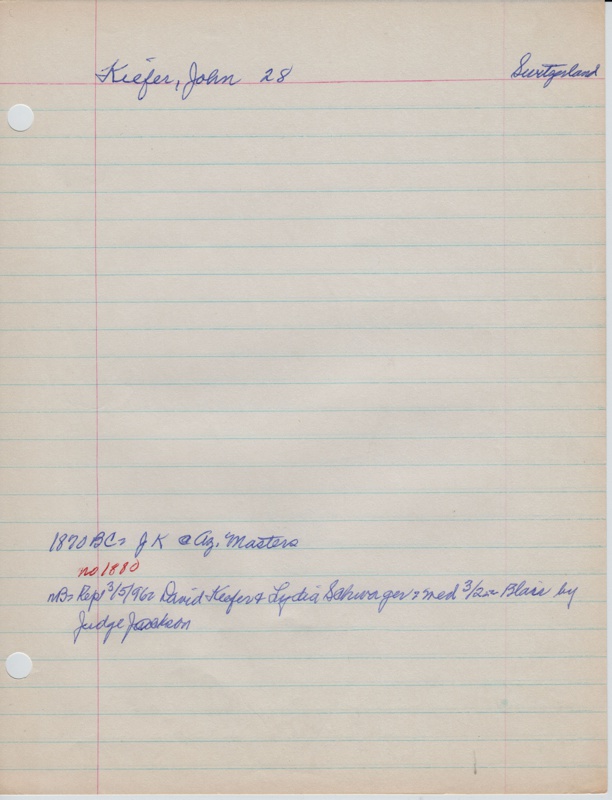 Kiefer, John 28 Switzerland
1870 BC= J K @ Az. Masters
no 1880
NB= Rep 3/5/96= David Keefer & Lydia Schwager = med 3/2 = Blair by
Judge Jackson